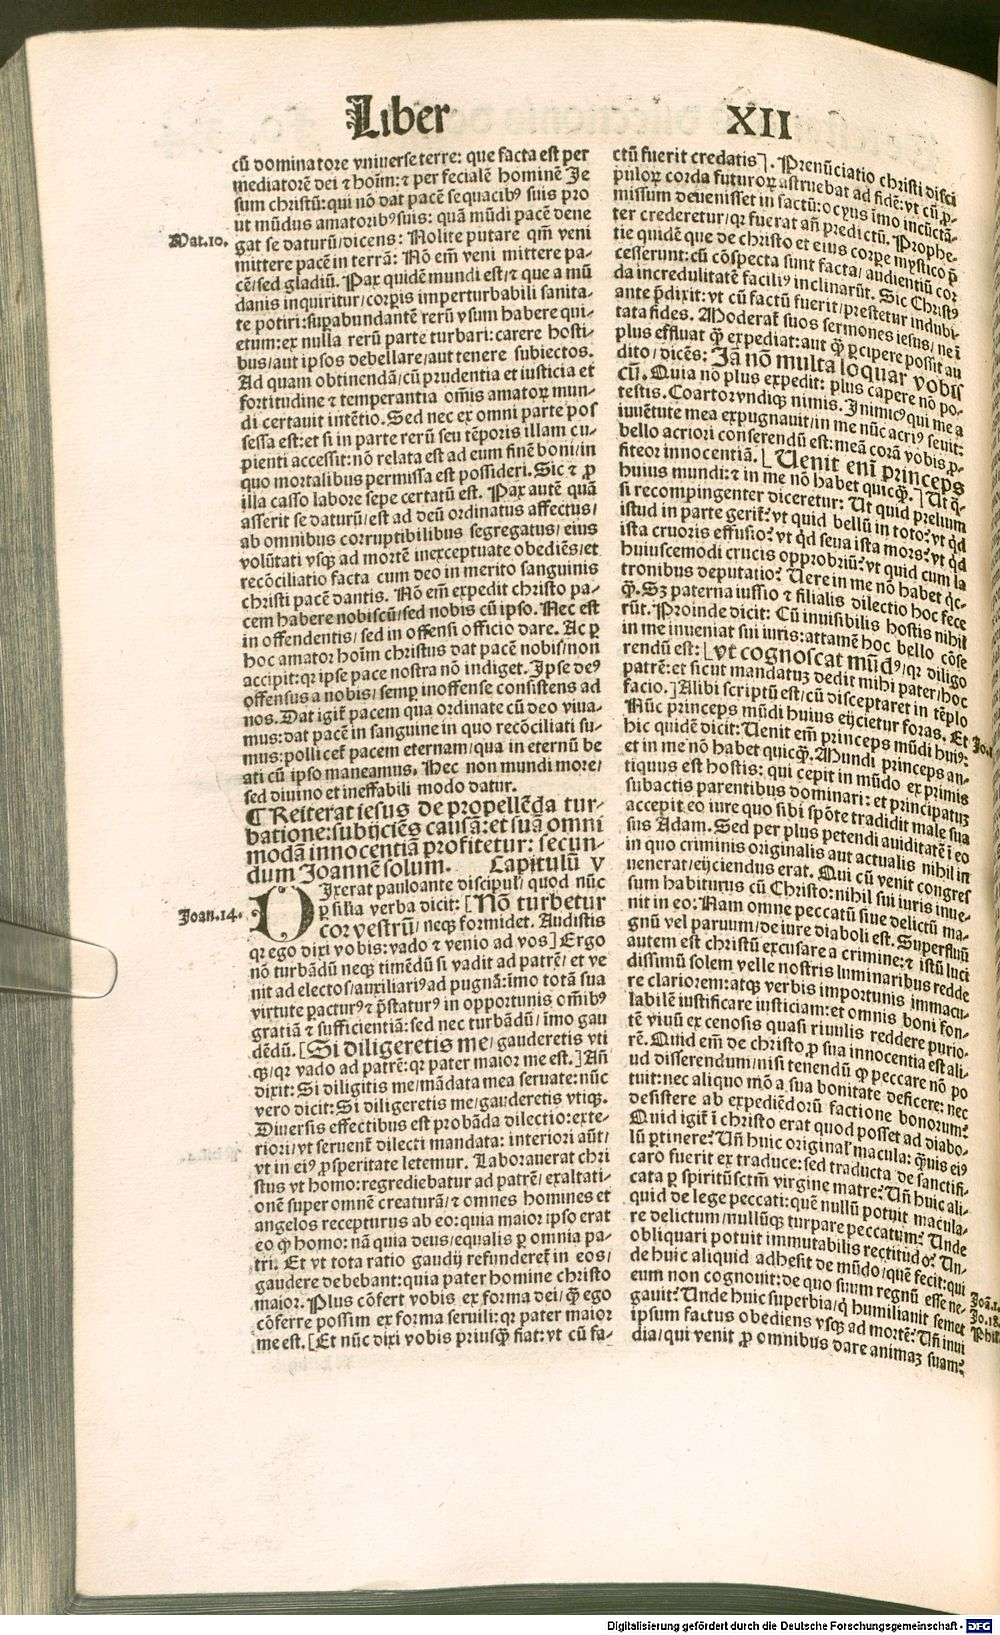 Liber XII
cū dominatore vniuerse terre: que facta est per
mediatorē dei ⁊ hoīm: ⁊ per fecialē hominē Je
sum christū: qui nō dat pacē sequacibꝰ suis pro
ut mūdus amatoribꝰ suis: quā mūdi pacē dene
Mat.10.
gat se daturū/dicens: Nolite putare qm̄ veni
mittere pacē in terrā: Nō em̄ veni mittere pa-
cē/sed gladiū. Pax quidē mundi est/⁊ que a mū
danis inquiritur/corꝑis imperturbabili sanita-
te potiri: suꝑabundantē rerū vsum habere qui-
etum: ex nulla rerū parte turbari: carere hosti-
bus/aut ipsos debellare/aut tenere subiectos.
Ad quam obtinendā/cū prudentia et iusticia et
fortitudine ⁊ temperantia om̄is amatoꝝ mun-
di certauit intētio. Sed nec ex omni parte pos
sessa est: et si in parte rerū seu tēporis illam cu-
pienti accessit: nō relata est ad eum finē boni/in
quo mortalibus permissa est possideri. Sic ⁊ ꝓ
illa casso labore sepe certatū est. Pax autē quā
asserit se daturū/est ad deū ordinatus affectus/
ab omnibus corruptibilibus segregatus/ eius
volūtati vsqꝫ ad mortē inexceptuate obediēs/et
recōciliatio facta cum deo in merito sanguinis
christi pacē dantis. Nō em̄ expedit christo pa-
cem habere nobiscū/sed nobis cū ipso. Nec est
in offendentis/ sed in offensi officio dare. Ac ꝑ
hoc amator hoīm christus dat pacē nobis/non
accipit: qꝛ ipse pace nostra nō indiget. Ipse deꝰ
offensus a nobis/ semꝑ inoffense consistens ad
nos. Dat igit᷑ pacem qua ordinate cū deo viua-
mus: dat pacē in sanguine in quo recōciliati su-
mus: pollicet᷑ pacem eternam/qua in eternū be
ati cū ipso maneamus. Hec non mundi more/
sed diuino et ineffabili modo datur.
¶ Reiterat iesus de propellēda tur-
batione: subijciēs causā: et suā omni
modā innocentiā profitetur: secun-
dum Joannē solum. Capitulū V
Joan.14.
DIxerat pauloante discipul᷑/ quod nūc
ꝑ silia verba dicit: [Nō turbetur
cor vestrū/ neqꝫ formidet. Audistis
qꝛ ego dixi vobis: vado ⁊ venio ad vos] Ergo
nō turbādū neqꝫ timēdū si vadit ad patrē/ et ve
nit ad electos/auxiliariꝰ ad pugnā: īmo totā sua
virtute pacturꝰ ⁊ p̄staturꝰ in opportunis om̄ibꝰ
gratiā ⁊ sufficientiā: sed nec turbādū/ īmo gau
dēdū. [Si diligeretis me/ gauderetis vti
qꝫ/qꝛ vado ad patrē: qꝛ pater maior me est.] Añ
dixit: Si diligitis me/mādata mea seruate: nūc
vero dicit: Si diligeretis me/gauderetis vtiqꝫ.
Diuersis effectibus est probāda dilectio: exte-
riori/vt seruent᷑ dilecti mandata: interiori aūt/
vt in eiꝰ ꝓsperitate letemur. Laborauerat chri
stus vt homo: regrediebatur ad patrē/ exaltati-
onē super omnē creaturā/⁊ omnes homines et
angelos recepturus ab eo: quia maior ipso erat
eo ꝙ homo: nā quia deus/equalis ꝑ omnia pa-
tri. Et vt tota ratio gaudij refunderet᷑ in eos/
gaudere debebant: quia pater homine christo
maior. Plus cōfert vobis ex forma dei/ ꝙ̄ ego
cōferre possim ex forma seruili: qꝛ pater maior
me est. [Et nūc dixi vobis priusꝙ̄ fiat: vt cū fa-
ctū fuerit credatis]. Prenūciatio christi disci
puloꝝ corda futuroꝝ astruebat ad fidē: vt cū ꝓ-
missum deuenisset in factū: ocyus īmo incūctā-
ter crederetur/qꝛ fuerat añ predictū. Prophe-
tie quidē que de christo et eius corꝑe mystico p̄
cesserunt: cū cōspecta sunt facta/ audientiū cor
da incredulitatē faciliꝰ inclinarūt. Sic Christꝰ
ante p̄dixit: vt cū factū fuerit/prestetur indubi-
tata fides. Moderat᷑ suos sermones iesus/ ne ī
plus effluat ꝙ̄ expediat: aut ꝙ̄ ꝑcipere possit au
dito/ dicēs: Jā nō multa loquar vobis
cū. Quia nō plus expedit: plus capere nō po-
testis. Coartor vndiqꝫ nimis. Inimicꝰ qui me a
iuuētute mea expugnauit/in me nūc acriꝰ seuit:
bello acriori conserendū est: meā corā vobis ꝓ-
fiteor innocentiā. [Uenit enī princeps
huius mundi: ⁊ in me nō habet quicꝙ̄.] Ut q̄-
si recompingenter diceretur: Ut quid prelium
istud in parte gerit᷑? vt quid bellū in toto? vt qd̄
ista cruoris effusio? vt qd̄ seua ista mors? vt qd̄
huiuscemodi crucis opprobriū? vt quid cum la
tronibus deputatio? Uere in me nō habet qc̄-
ꝙ̄. Sꝫ paterna iussio ⁊ filialis dilectio hoc fece
rūt. Proinde dicit: Cū inuisibilis hostis nihil
in me inueniat sui iuris: attamē hoc bello cōse
rendū est: [vt cognoscat mūdꝰ/qꝛ diligo
patrē: et sicut mandatuꝫ dedit mihi pater/hoc
facio.] Alibi scriptū est/ cū disceptaret in tēplo
Nūc princeps mūdi huius eijcietur foras. Et
hic quidē dicit: Uenit em̄ princeps mūdi huiꝰ:
et in me nō habet quicꝙ̄. Mundi princeps an-
tiquus est hostis: qui cepit in mūdo ex primis
subactis parentibus dominari: et principatuꝫ
accepit eo iure quo sibi spōte tradidit male sua
sus Adam. Sed per plus petendi auiditatē ī eo
in quo criminis originalis aut actualis nihil in
uenerat/eijciendus erat. Qui cū venit congres
sum habiturus cū Christo: nihil sui iuris inue-
nit in eo: Nam omne peccatū siue delictū ma-
gnū vel paruum/de iure diaboli est. Superfluū
autem est christū excusare a crimine: ⁊ istū luci
dissimū solem velle nostris luminaribus redde
re clariorem: atqꝫ verbis importunis immacu-
labilē iustificare iusticiam: et omnis boni fon-
tē viuū ex cenosis quasi riuulis reddere purio-
rē. Quid em̄ de christo ꝓ sua innocentia est ali-
ud disserendum/nisi tenendū ꝙ peccare nō po
tuit: nec aliquo mō a sua bonitate deficere: nec
desistere ab expediēdorū factione bonorum?
Quid igit᷑ ī christo erat quod posset ad diabo-
lū ꝑtinere? Uñ huic original᷑ macula: ꝙ̄uis eiꝰ
caro fuerit ex traduce: sed traducta de sanctifi-
cata ꝑ spiritūsctm̄ virgine matre? Uñ huic ali-
quid de lege peccati: quē nullū potuit macula-
re delictum/nullūqꝫ turpare peccatum? Unde
obliquari potuit immutabilis rectitudo? Un-
de huic aliquid adhesit de mūdo/quē fecit: qui
eum non cognouit: de quo suum regnū esse ne-
gauit? Unde huic superbia/q̄ humiliauit semet
ipsum factus obediens vsqꝫ ad mortē? Uñ inui
dia/qui venit ꝓ omnibus dare animaꝫ suam?
Joā.1.
Jo.18.
Digitalisierung gefördert durch die Deutsche Forschungsgemeinschaft - DFG